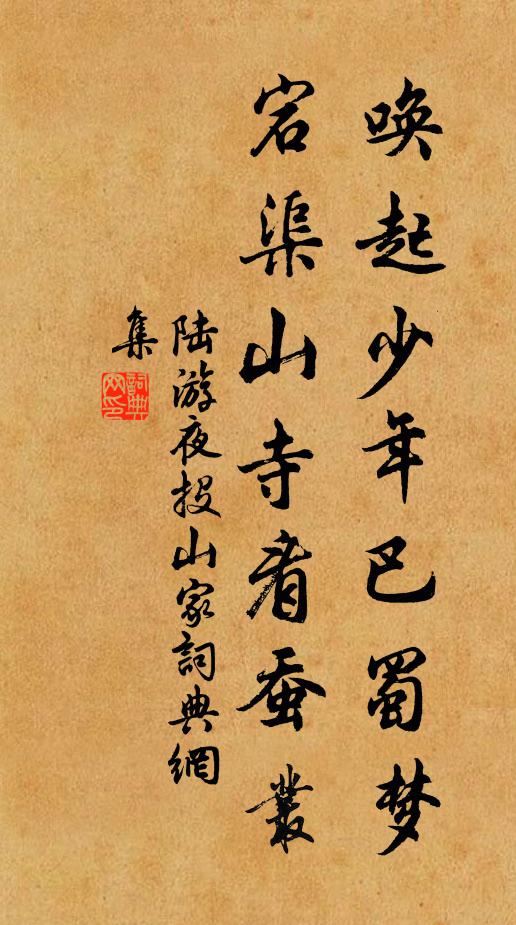 唤起少年巴蜀梦
宕渠山寺看蚕叢
陆游夜投山家詞典網
集
詞典网印